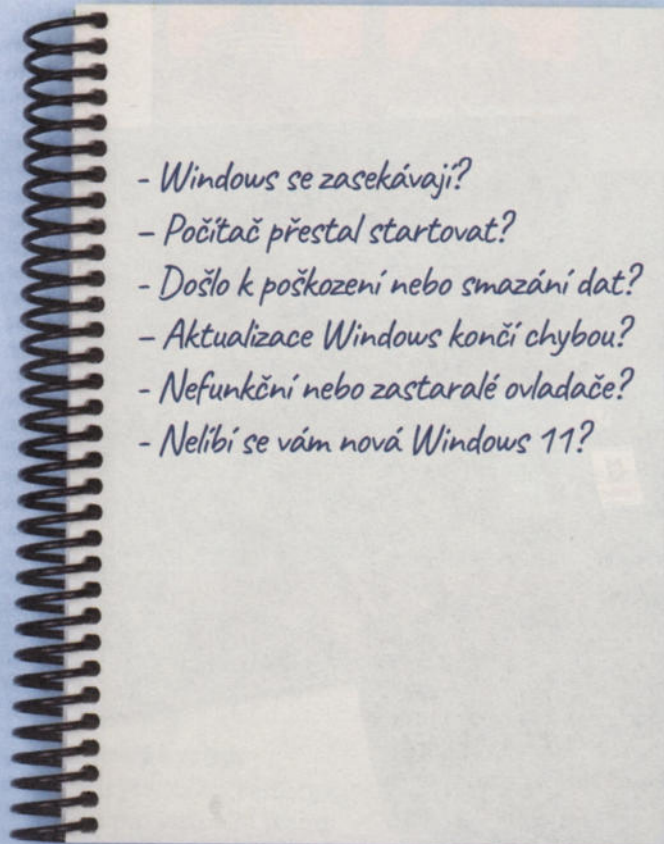 - Windows se zasekávají?
– Počítač přestal startovat?
- Došlo k poškození nebo smazání dat?
– Aktualizace Windows končí chybou?
- Nefunkční nebo zastaralé ovladače?
- Nelíbí se vám nová Windows 11?